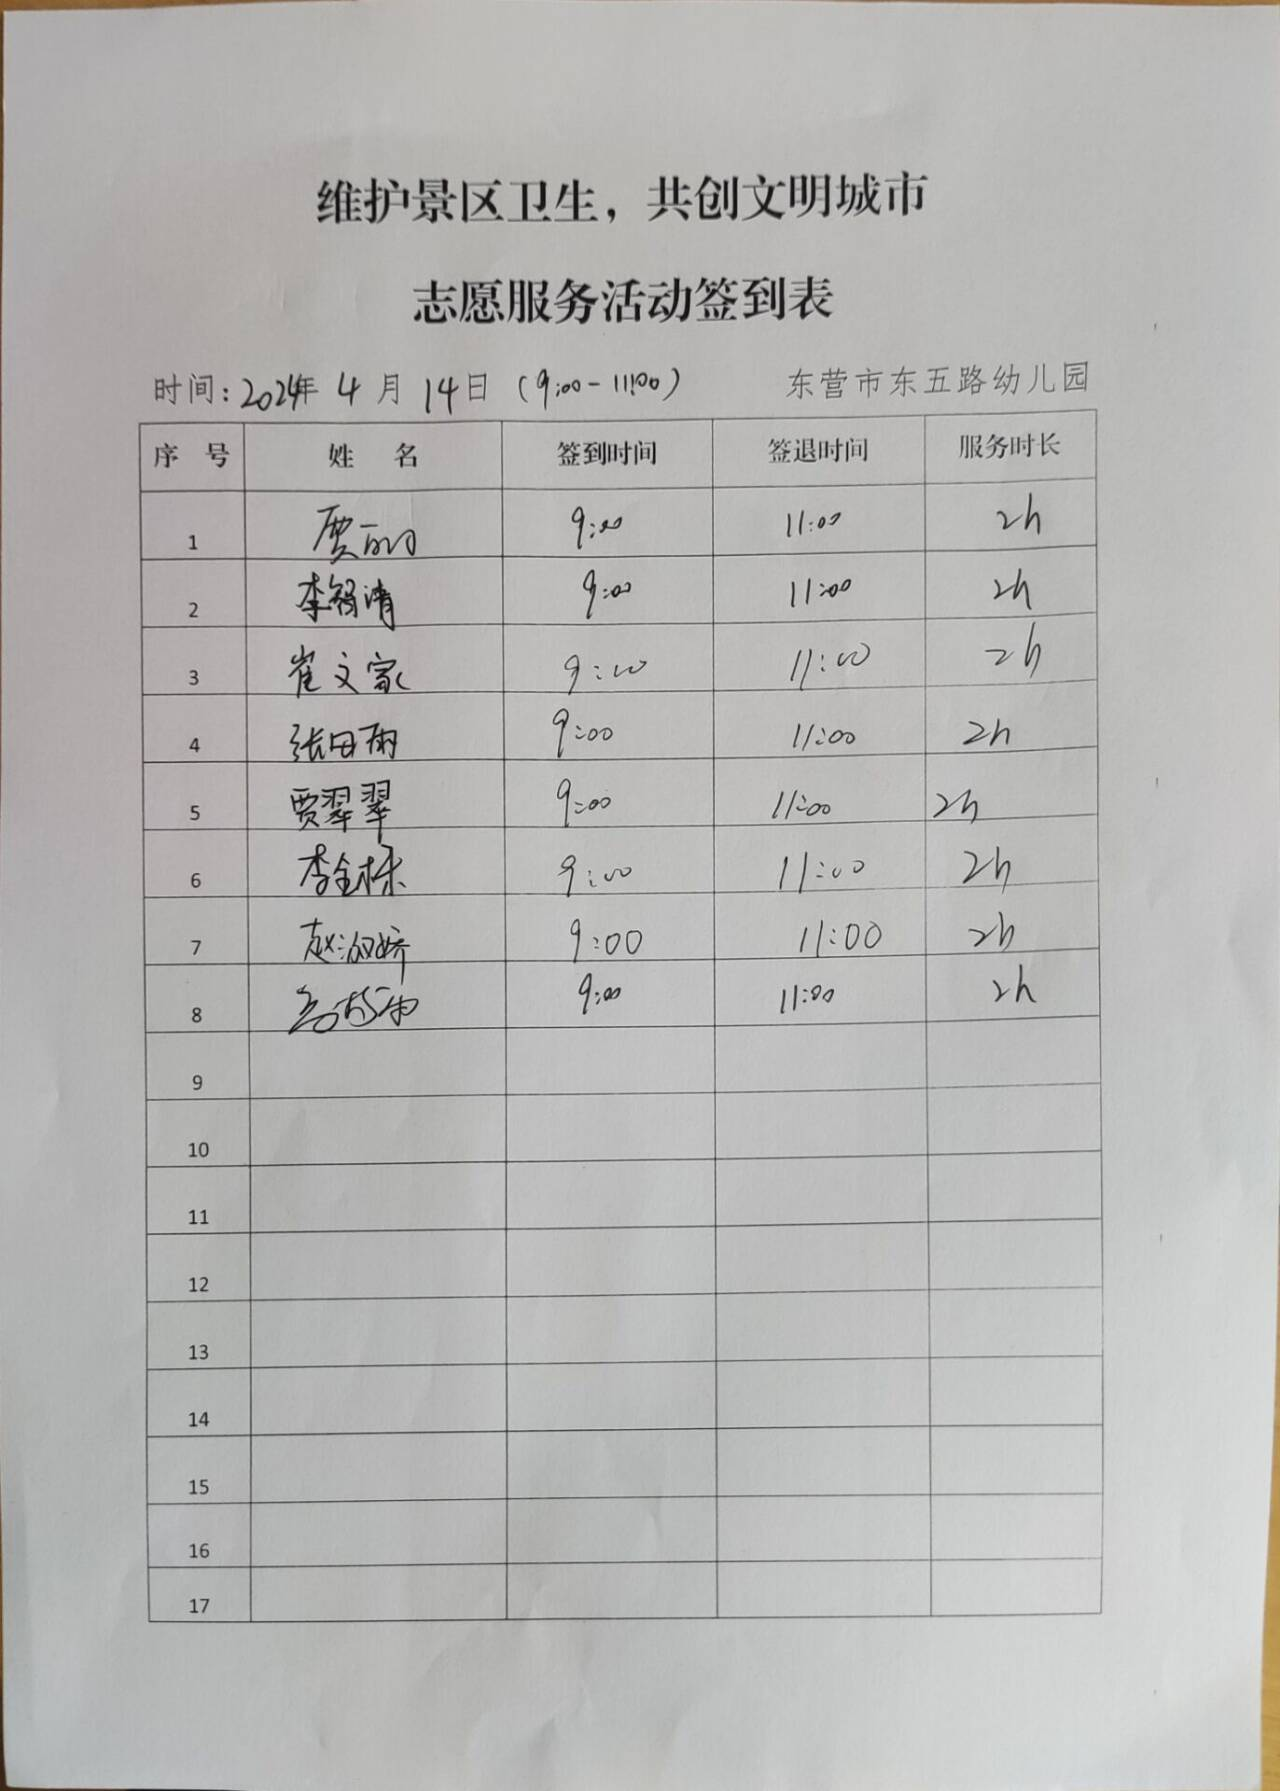 维护景区卫生，共创文明城市
志愿服务活动签到表
时间：2024年 4 月 14日（9:00-11:00） 东营市东五路幼儿园
序 号 姓 名 签到时间 签退时间 服务时长
1 贾丽 9:00 11:00 2h
2 李 清 9:00 11:00 2h
3 崔文家 9:00 11:00 2h
4 张田雨 9:00 11:00 2h
5 贾翠翠 9:00 11:00 2h
6 李金栋 9:00 11:00 2h
7 赵淑娇 9:00 11:00 2h
8 9:00 11:00 2h
9
10
11
12
13
14
15
16
17